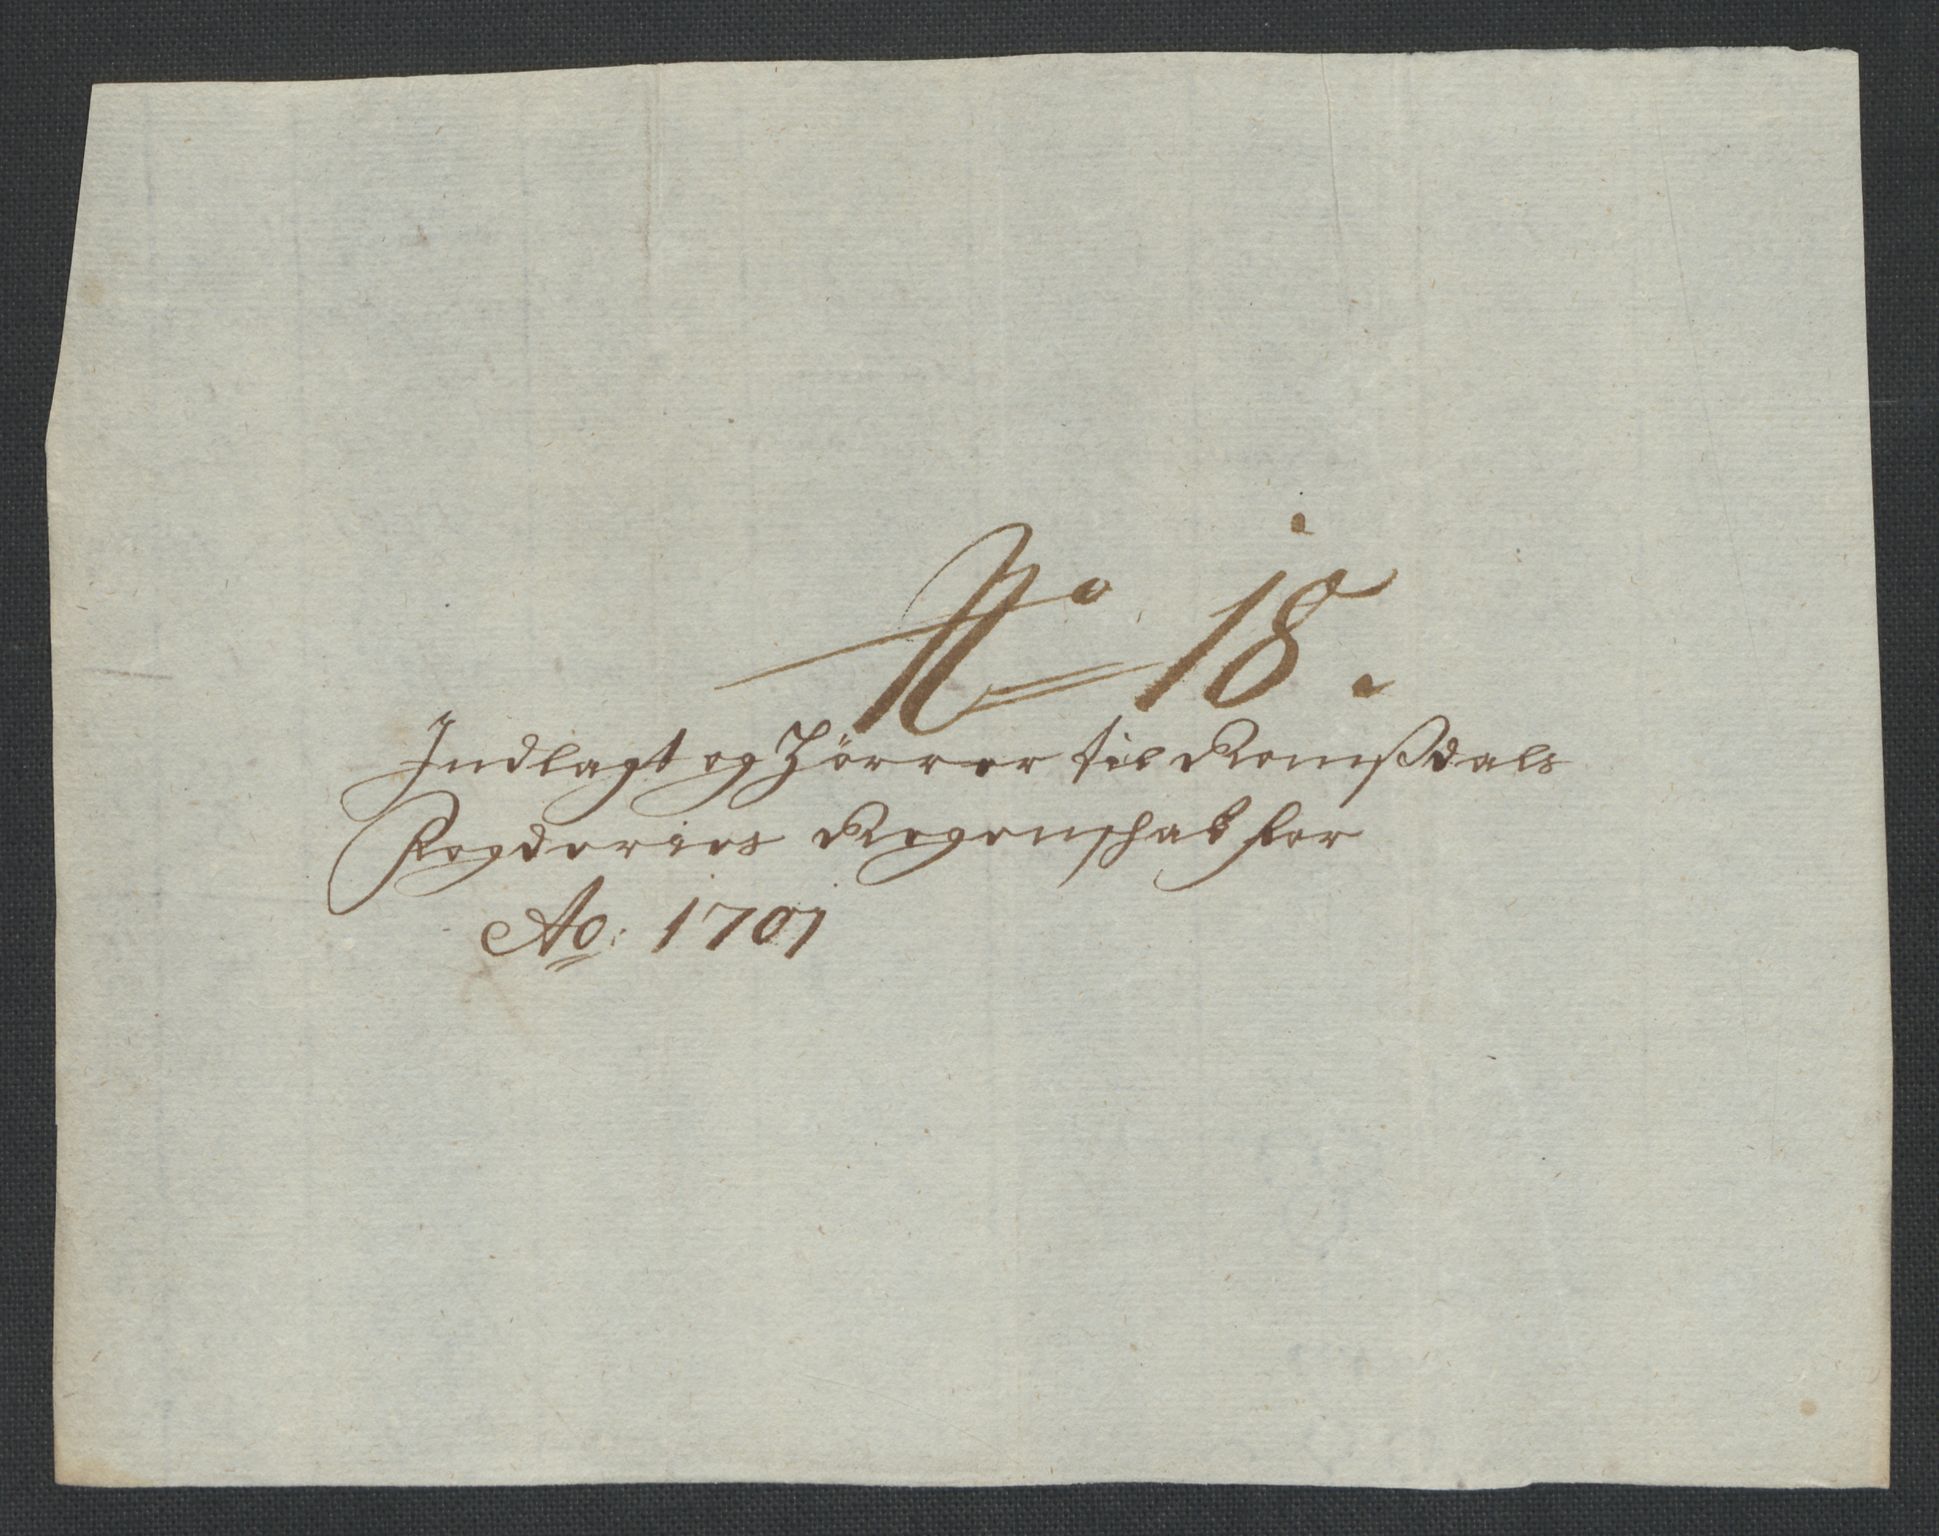 No 18.
Indlagt og Hörrer til Romßdals
Fogderies Regenschab for
Ao: 1701